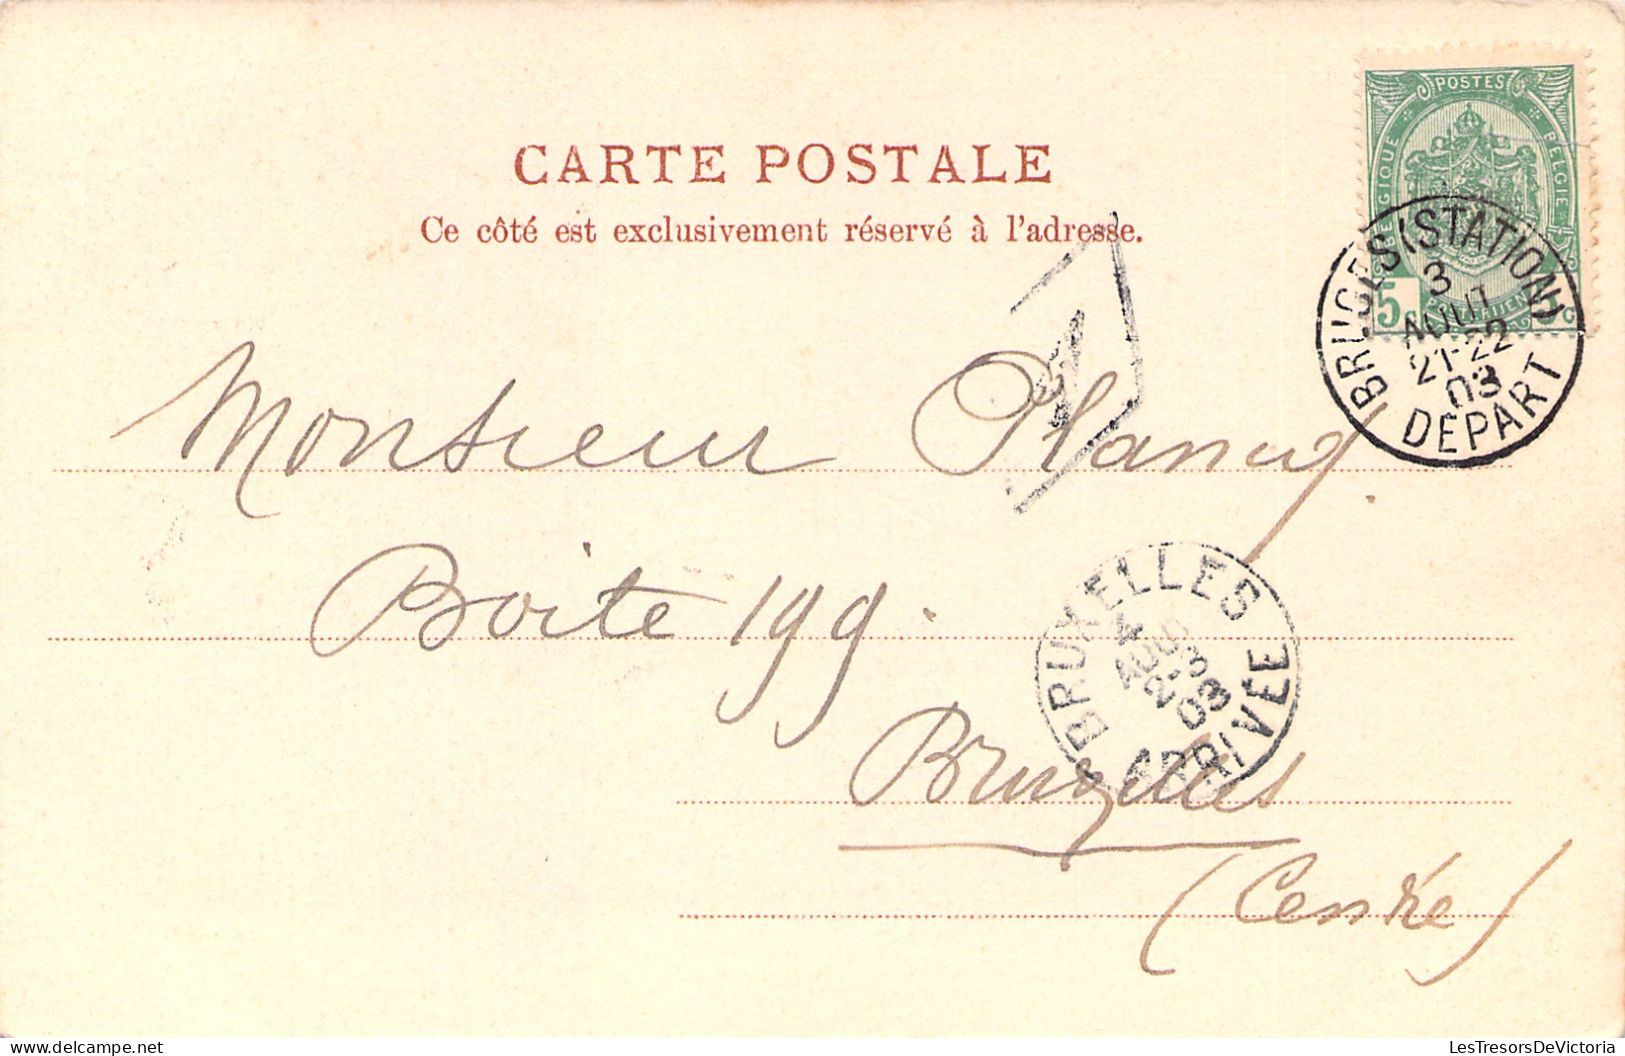 CARTE POSTALE
Ce côté est exclusivement réservé à l'adresse.
POSTES
BELGIQUE
BELGIE
POSTERIJEN
5 c
5 c
BRUGES (STATION)
3
AOUT
21-22
03
DEPART
Monsieur Plancq.
Boite 199.
BRUXELLES
4
AOUT
2-3
03
ARRIVÉE
Bruxelles
(Centre)
LesTresorsDeVictoria